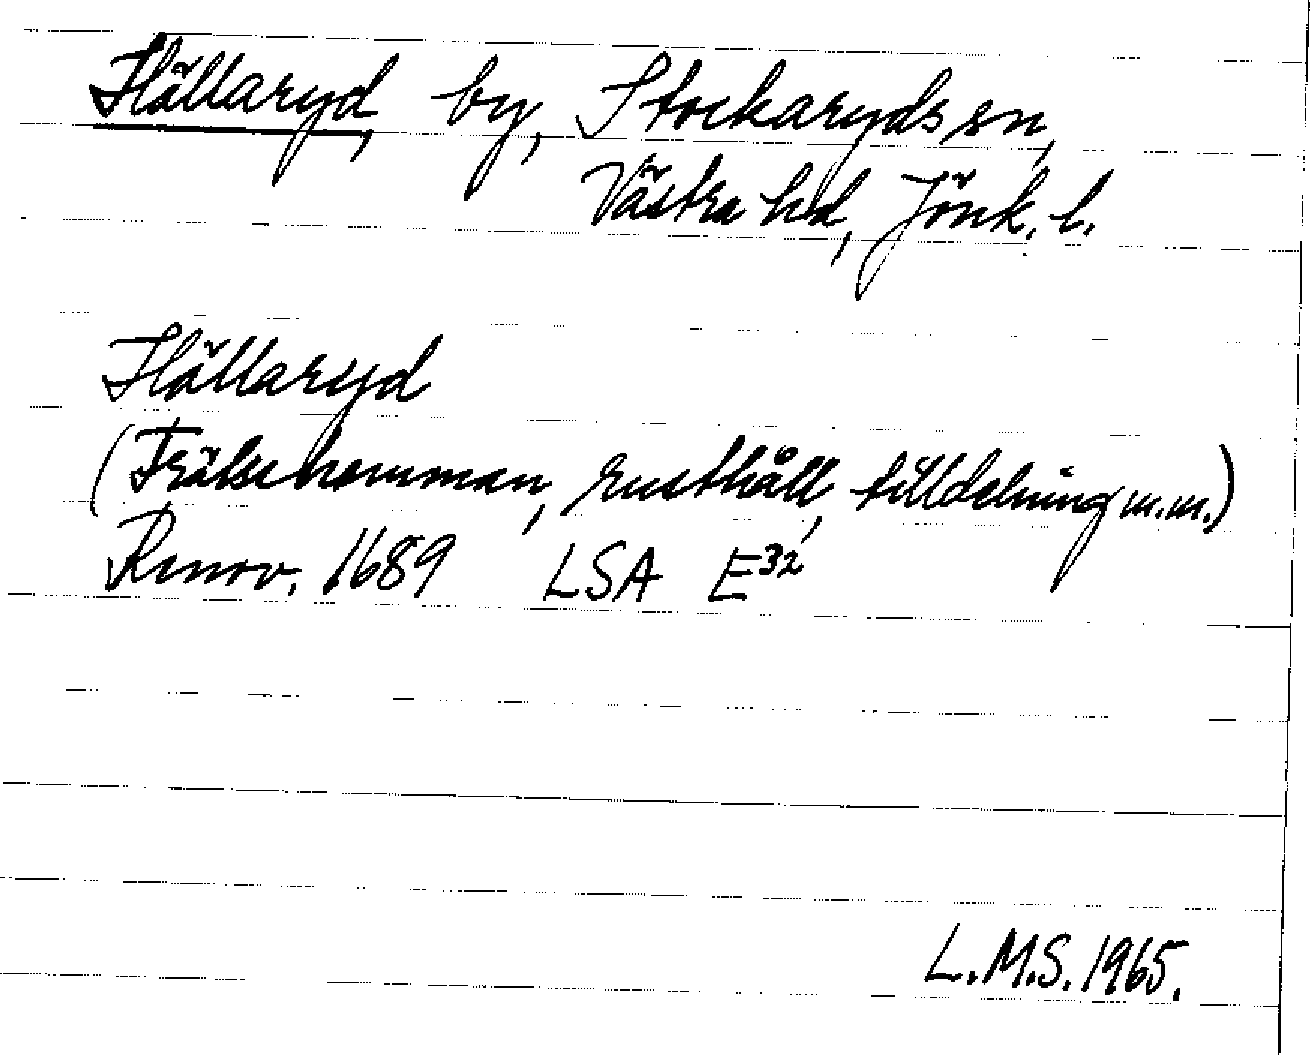 Hällaryd, by, Stockaryds sn,
Västra hd, Jönk. l.
Hällaryd
(Frälsehemman, rusthåll, tilldelning m.m.)
Renov. 1689 LSA E32
L.M.S. 1965.